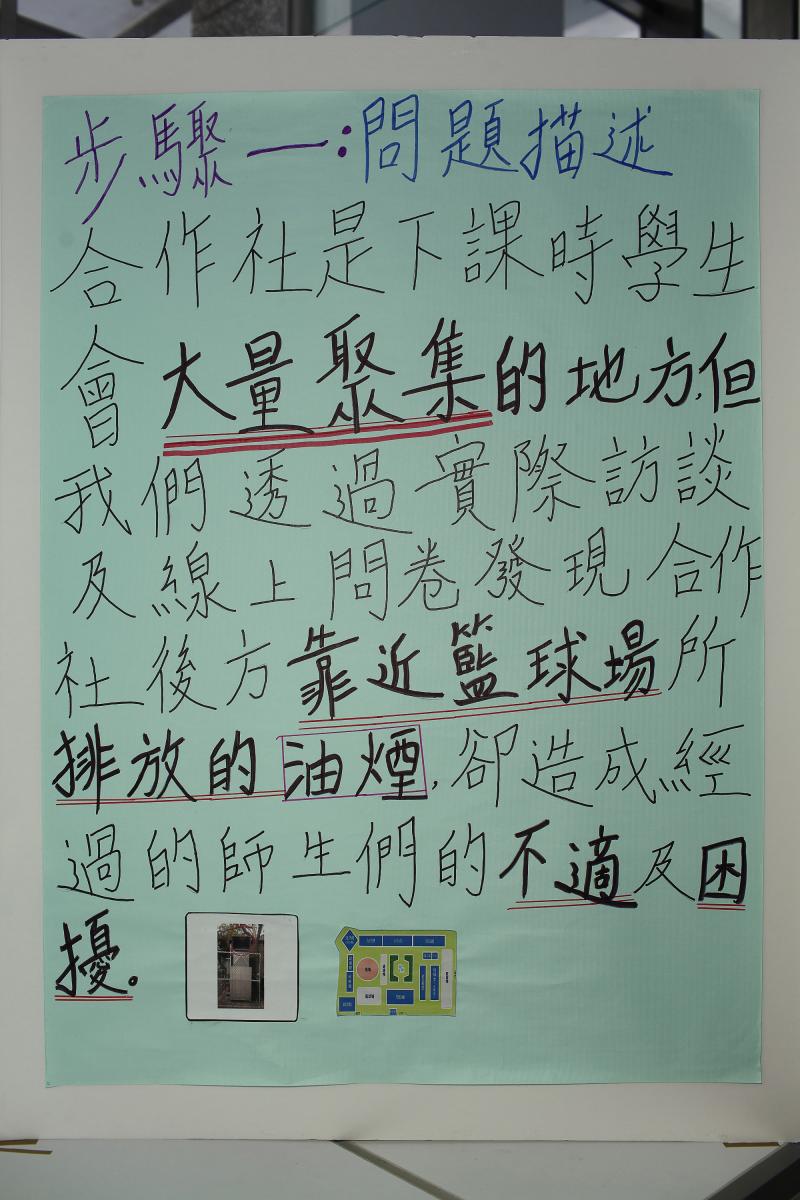 步驟一:問題描述
合作社是下課時學生
會大量聚集的地方,但
我們透過實際訪談
及線上問卷發現合作
社後方靠近籃球場所
排放的油煙,卻造成經
過的師生們的不適及困
擾。